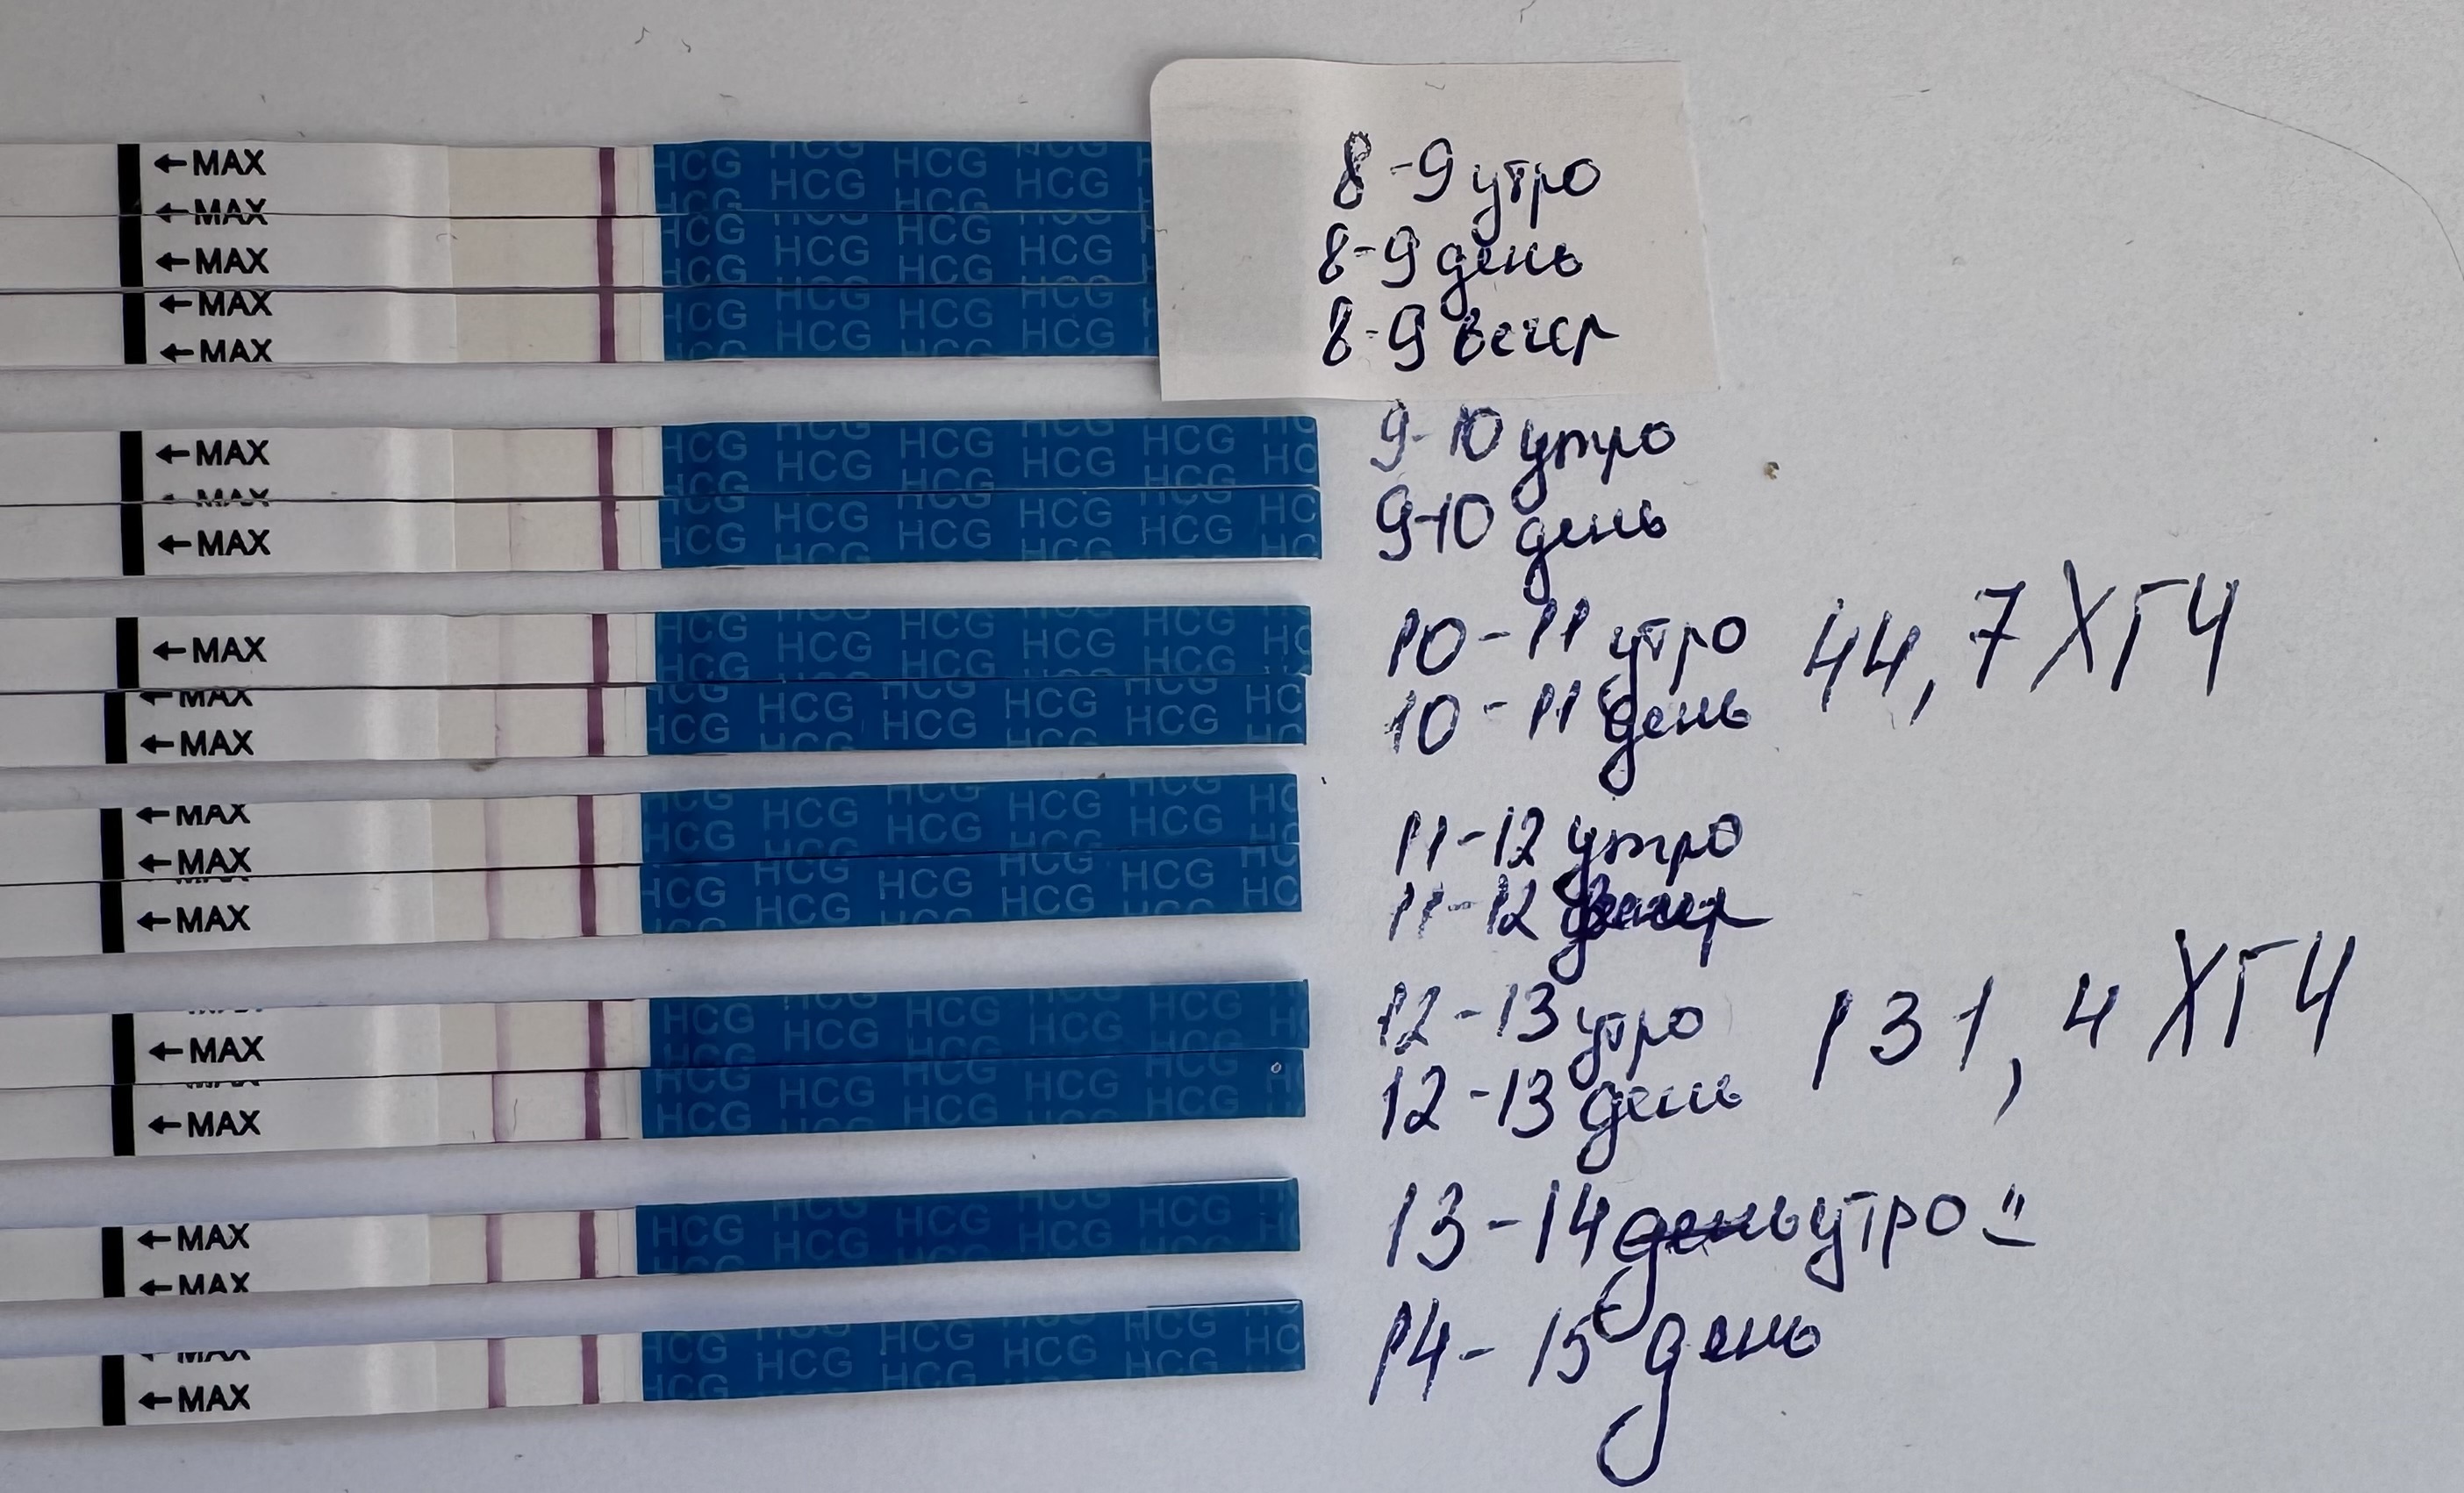 ←MAX HCG HCG HCG HCG 8-9 утро
←MAX HCG HCG HCG
←MAX HCG HCG HCG 8-9 день
←MAX HCG HCG HCG
←MAX HCG HCG HCG 8-9 вечер
←MAX HCG HCG HCG HCG HCG 9-10 утро
←MAX HCG HCG HCG HCG HCG 9-10 день
←MAX HCG HCG HCG HCG HCG 10-11 утро 44,7 ХГЧ
←MAX
←MAX HCG HCG HCG HCG HCG 10-11 день
←MAX HCG HCG HCG HCG HCG 11-12 утро
←MAX
←MAX HCG HCG HCG HCG HCG 11-12 вечер
←MAX HCG HCG HCG HCG HCG 12-13 утро 131,4 ХГЧ
←MAX HCG HCG HCG HCG HCG 12-13 день
←MAX HCG HCG HCG HCG HCG 13-14 утро
←MAX
←MAX HCG HCG HCG HCG HCG 14-15 день